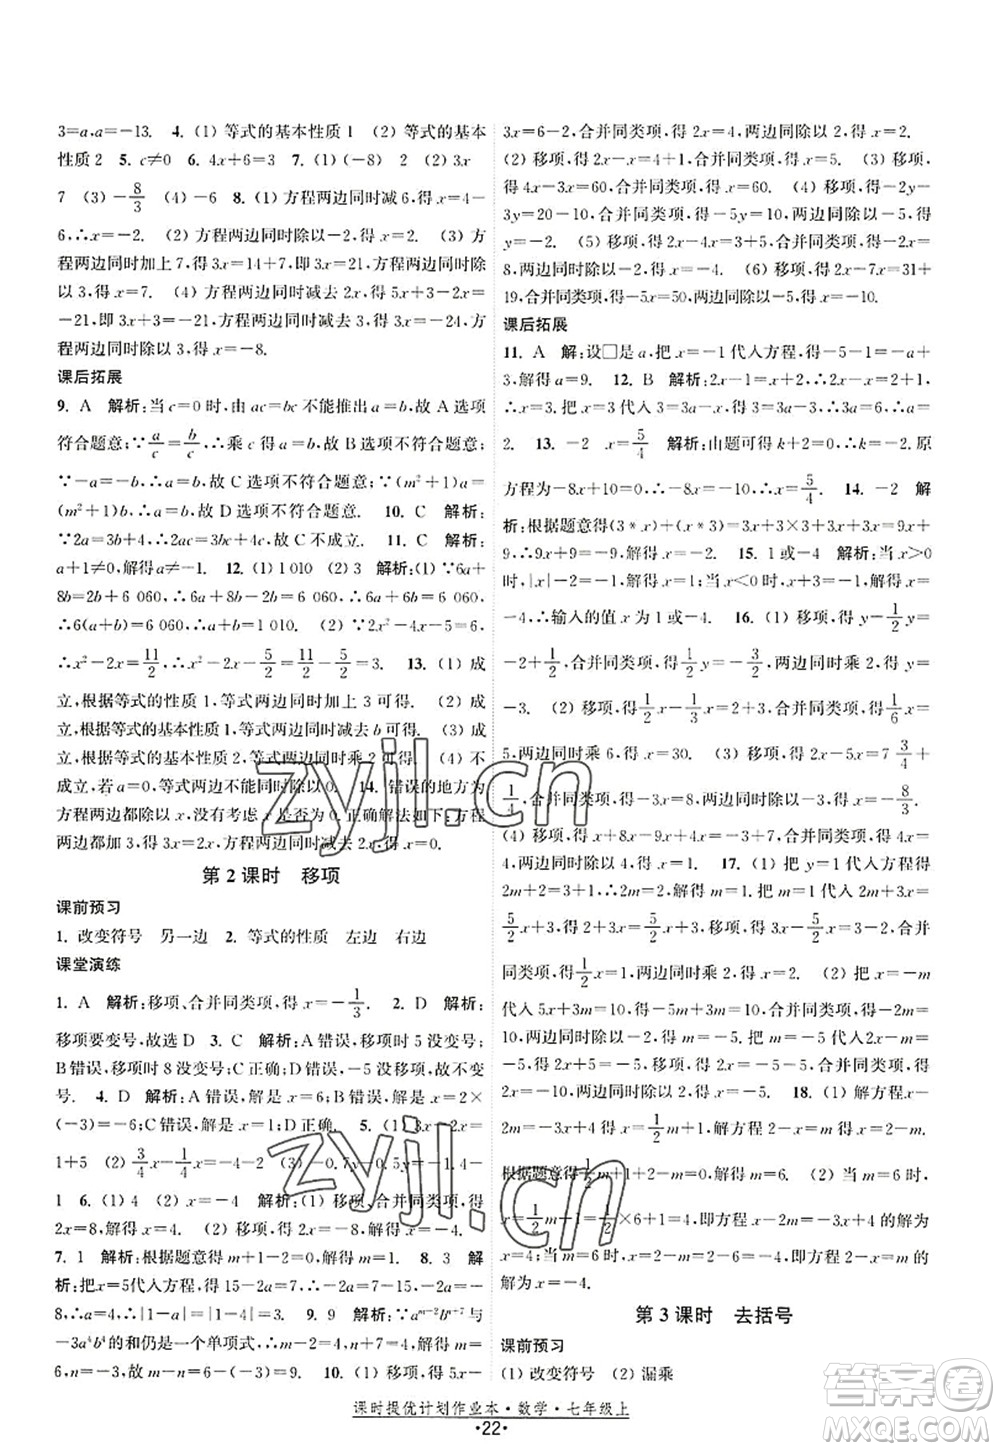 3=a,a=-13. 4. (1) 等式的基本性质 1 (2) 等式的基本
性质 2 5. c≠0 6. 4x+6=3 7. (1) (-8) 2 (2) 3x
7 (3) -8/3 (4) -6 8. (1) 方程两边同时减 6,得 x=4-
6,∴x=-2. (2) 方程两边同时除以-2,得 x=-2. (3) 方
程两边同时加上 7,得 3x=14+7,即 3x=21,方程两边同时除
以 3,得 x=7. (4) 方程两边同时除以 2,得 4x+3-x=
-21,即 3x+3=-21,方程两边同时减去 3,得 3x=-24,方
程两边同时除以 3,得 x=-8.
课后拓展
9. A 解析:当 c=0 时,由 ac=bc 不能推出 a=b,故 A 选项
符合题意;∵a/c=b/c,∴乘 c 得 a=b,故 B 选项不符合题意;
∵-a=-b,∴a=b,故 C 选项不符合题意;∵(m²+1)a=
(m²+1)b,∴a=b,故 D 选项不符合题意. 10. C 解析:
∵2a=3b,∴4a=6b,∴2ac=3bc,故 C 不成立. 11. C 解析:
a+1≠b. 12. (1) 1 010 (2) 3 解析:(1) ∵6a+
8b=2b+6 060,∴6a+8b-2b=6 060,∴6a+6b=6 060,
∴6(a+b)=6 060,∴a+b=1 010. (2) ∵2x²-4x-5=6,
∴x²-2x=11/2,∴x²-2x-5/2=11/2-5/2=3. 13. (1) 成
立,根据等式的性质 1,等式两边同时加上 3 可得. (2) 成
立,根据等式的基本性质 1,等式两边同时减去 b 可得. (3) 成
立,根据等式的基本性质 2,等式两边同时乘 2 可得. (4) 不
成立,若 a=0,等式两边不能同时除以 0. 14. 错误的地方为
方程两边都除以 x,没有考虑 x 是否为 0.正确解法如下:方程
两边都加 2,得 5x=2x,方程两边同时减去 2x,得 3x=0,方程
两边同时除以 3,得 x=0.
第 2 课时 移项
课前预习
1. 改变符号 另一边 2. 等式的性质 左边 右边
课堂演练
1. A 解析:移项、合并同类项,得 x=-1/3. 2. D 解析:
移项要变号,故选 D 3. C 解析:A 错误,移项时 5 没变号;
B 错误,移项时 8 没变号;C 正确;D 错误,-5 移项时没变
号. 4. D 解析:A 错误,解是 x=1;B 错误,解是 x=2×
(-3)=-6;C 错误,解是 x=-4;D 正确. 5. (1) 3x-x=
1+5 (2) 3/4x-x=-4-2 (3) -0.7y-0.5y=4-
1 6. (1) 4 (2) x=-4 解析:(1) 移项、合并同类项,得
2x=8,解得 x=4. (2) 移项,得 2x=-8,解得 x=-4.
7. 1 解析:根据题意得 m+1-2=0,解得 m=1. 8. 3 解
析:把 x=5 代入方程,得 15-2a=7,∴-2a=7-15,-2a=-
8,∴a=4,∴|1-a|=|1-4|=3. 9. 9 解析:∵aᵐ⁻²bⁿ⁻⁷与
-3a⁴b⁴的和仍是一个单项式,∴m-2=4,n-7=-4,解得 m=
6,n=3,故 m-n=6-(-3)=9. 10. (1) 移项,得 5x-
3x=6-2,合并同类项,得 2x=4,两边同除以 2,得 x=2.
(2) 移项,得 2x-x=4+1,合并同类项,得 x=5. (3) 移项,
得 4x-3x=60,合并同类项,得 x=60. (4) 移项,得-2y-
3y=20-10,合并同类项,得-5y=10,两边同时除以-5,得
y=-2. (5) 移项,得 2x-4x=3+5,合并同类项,得-2x=
8,两边同时除以-2,得 x=-4. (6) 移项,得 12x-7x=31+
19,合并同类项,得 5x=50,两边同时除以 5,得 x=10.
课后拓展
11. A 解:设□是 a,把 x=-1 代入方程,得-5-1=-a+
3,解得 a=9. 12. B 解析:2x-a=x,移项,得 2x-x=a,
∴x=a.∵把 x=3 代入 x=a,得 3=a,∴a-1=3-1=
2. 13. -2 x=5/4 解析:由题可得 k+2=0,∴k=-2.原
方程为-8x+10=0,∴-8x=-10,∴x=5/4. 14. -2 解
析:根据题意得(3*x)+(x*3)=3x+3×3+3x+3x=9x+
9,∴9x+9=-9,解得 x=-2. 15. 1 或-4 解析:当 x>0
时,|x|=x,∴x+3=4,∴x=1;当 x<0 时,|x|=-x,∴-x=
4,∴输入的值 x 为 1 或-4. 16. (1) 移项,得 y-1/2y=
-2+1/2,合并同类项,得1/2y=-3/2,两边同时乘 2,得 y=
-3. (2) 移项,得1/2x-1/3x=2+3,合并同类项,得1/6x=
5,两边同时乘 6,得 x=30. (3) 移项,得 2x-5x=7 3/4+
1/4,合并同类项,得-3x=8,两边同时除以-3,得 x=-8/3.
(4) 移项,得 3x+x-3x=4-1,合并同类项,得 x=3,
两边同时除以 1,得 x=3. 17. (1) 把 x=-4 代入方程得
2m+1=2m+1=-12-2,合并同类项,得 2m=-3,∴
5/2x+m=
合并同类项,得1/2x=1,两边同时乘 2,得 x=2. (2) 把 x=-m
代入 5x+3m=1+x,得-5m+3m=1-m,合并同类项,
得-m=1,两边同时除以-1,得 m=-1. 18. (1) 解方程
根据题意,得-1/2m-1+2-m=0,解得 m= (2) 当 m=6 时,
x=-1/2m-1=-1/2×6-1=-4,即方程 x-2m=-x+4m 的解为
x=1/2+1/2m=1/2+1/2×6=-4,即方程 x-2m=-3x-4 的解为
解为 x=-4.
第 3 课时 去括号
课前预习
(1) 改变符号 (2) 漏乘
课时提优计划作业本·数学·七年级上
·22·
zyjl.cn
zyjl.cn
答案圈
MXQE.COM